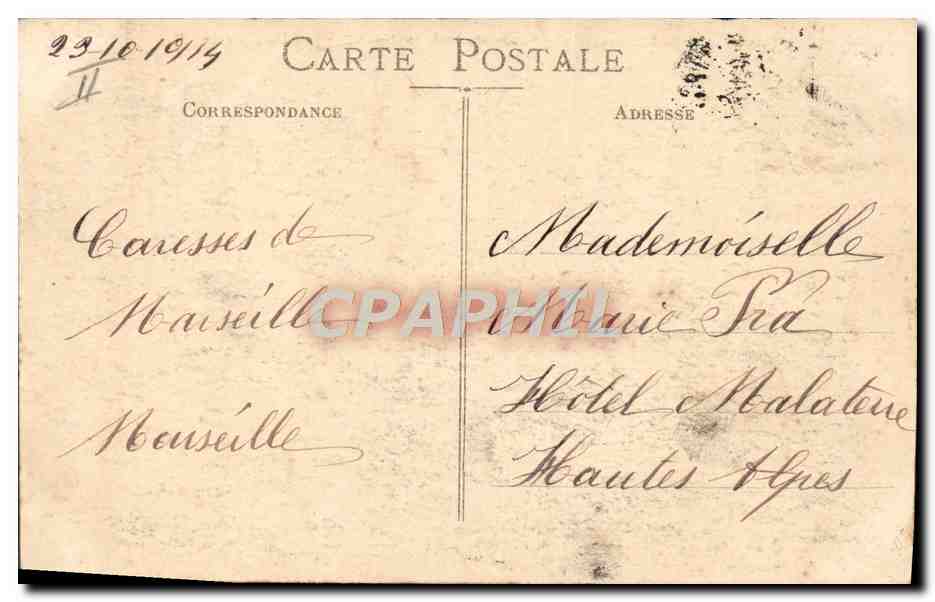 23-10-1914
II
CARTE POSTALE
CORRESPONDANCE
ADRESSE
Caresses de
Marséille
Marséille
Mademoiselle
Marie Pra
Hôtel Malaterre
Hautes Alpes
CPAPHIL